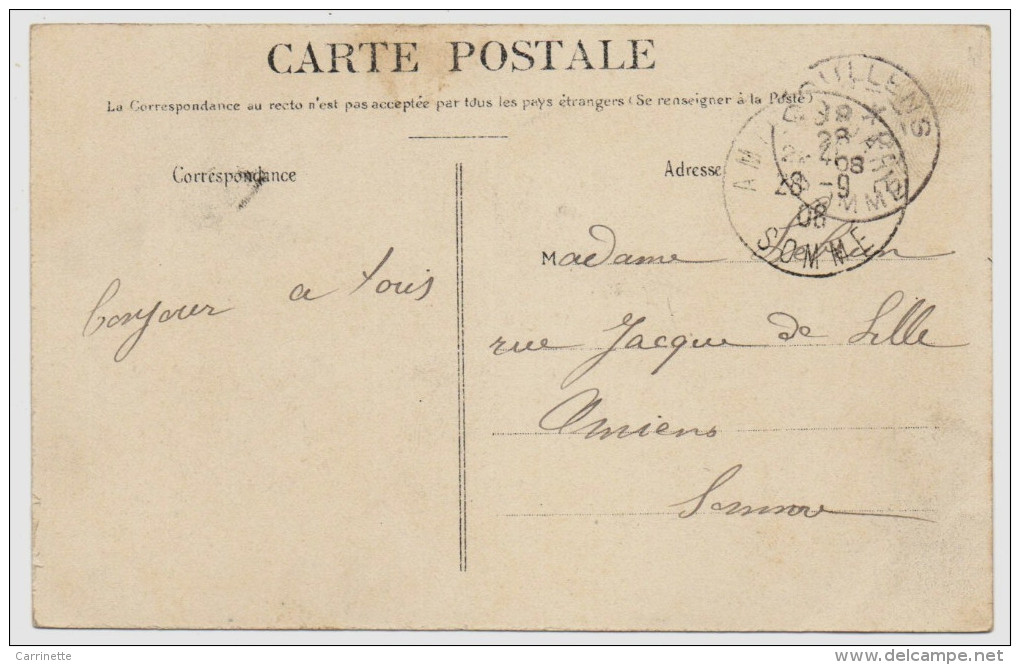 CARTE POSTALE
La Correspondance au recto n'est pas acceptée par tous les pays étrangers (Se renseigner à la Poste)
Correspondance
Adresse
DOULLENS
28
08
SOMME
AMIENS GARE
28 -9
08
SOMME
bonjour a tous
Madame
rue Jacque de Lille
Amiens
Somme
Carrinette
delcampe.net